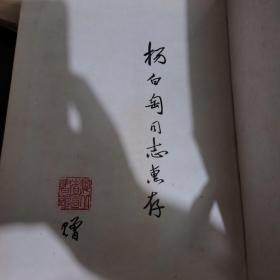 杨白匋同志惠存
赠